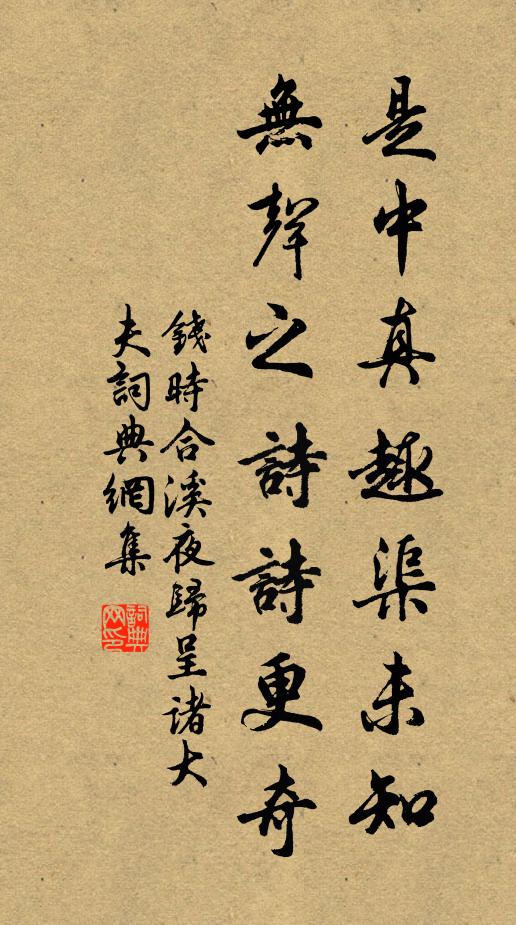 是中真趣渠未知
無聲之詩詩更奇
錢時合溪夜歸呈諸大
夫詞典網集
詞典網印